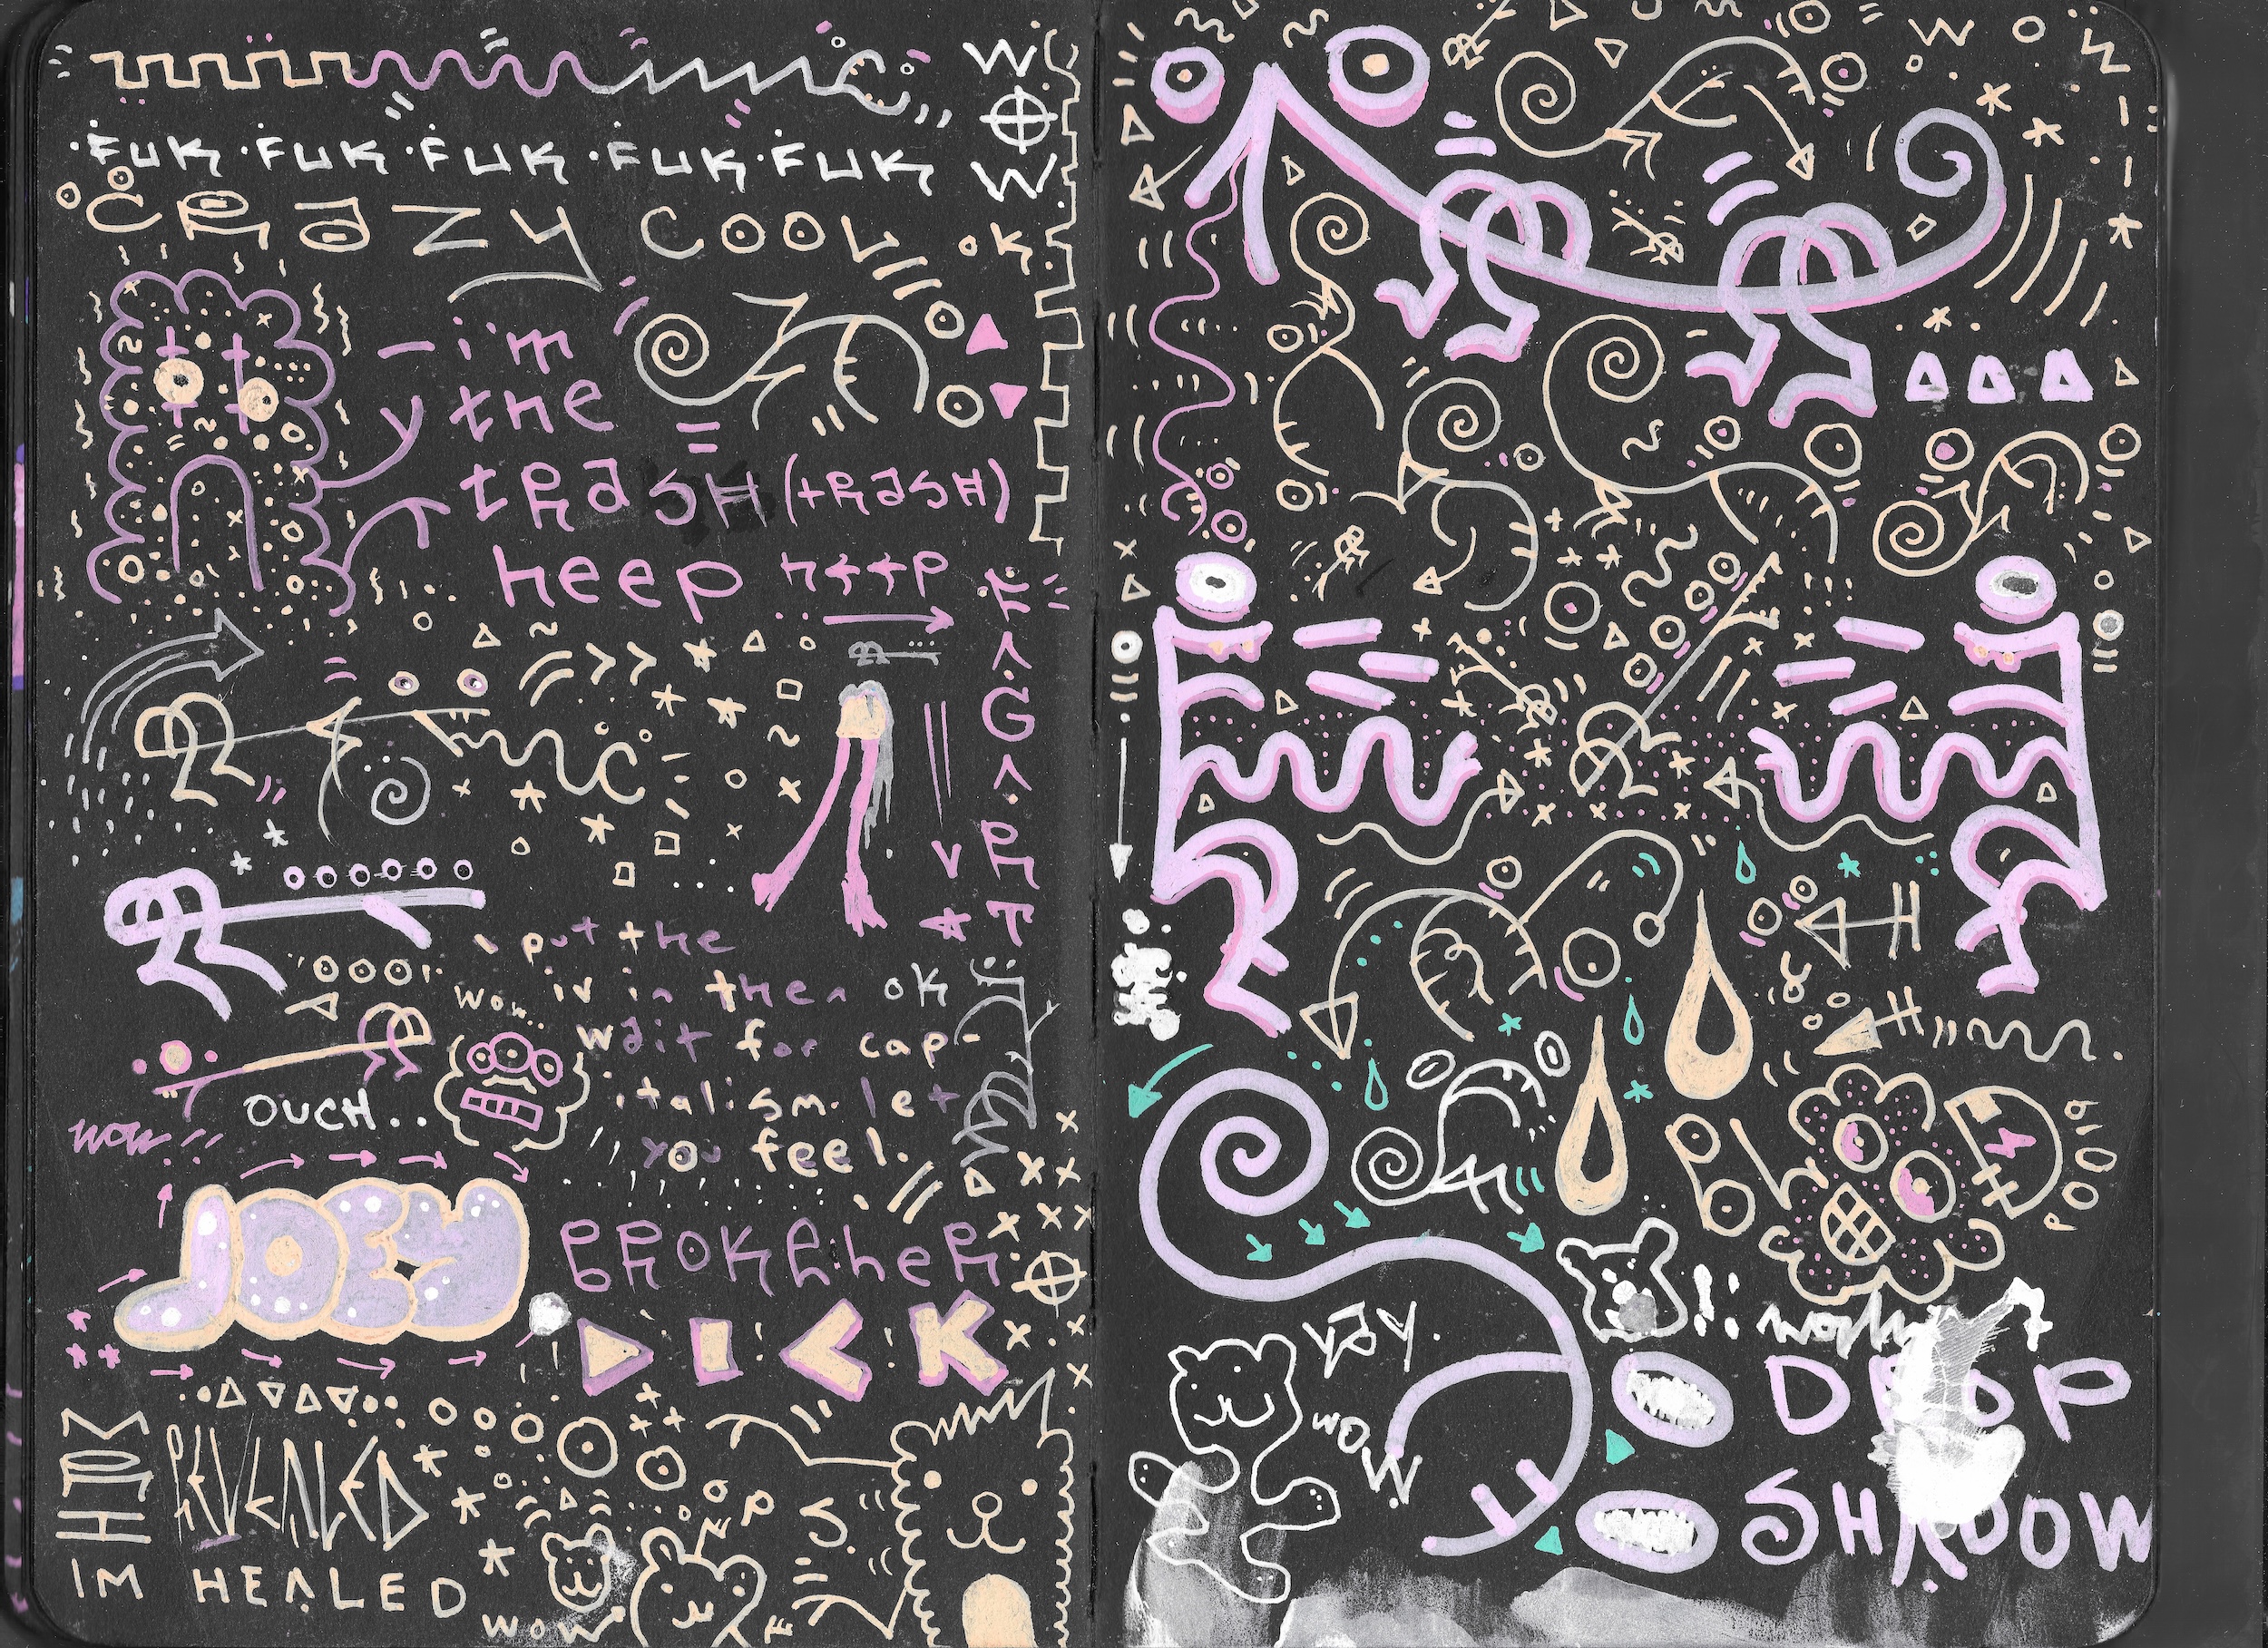 WOW
FUK FUK FUK FUK FUK
CRAZY COOL OK
i'm
the
tRaSH (tRaSH)
heep
I put the
wow.. iv in then ok
wait for cap-
italism. let
you feel.
OUCH..
wow
JOEY
BROKE heR
DICK
REVEALED
IM HEALED
OOPS
WOW
WOW
yay.
wow
DROP
SHADOW